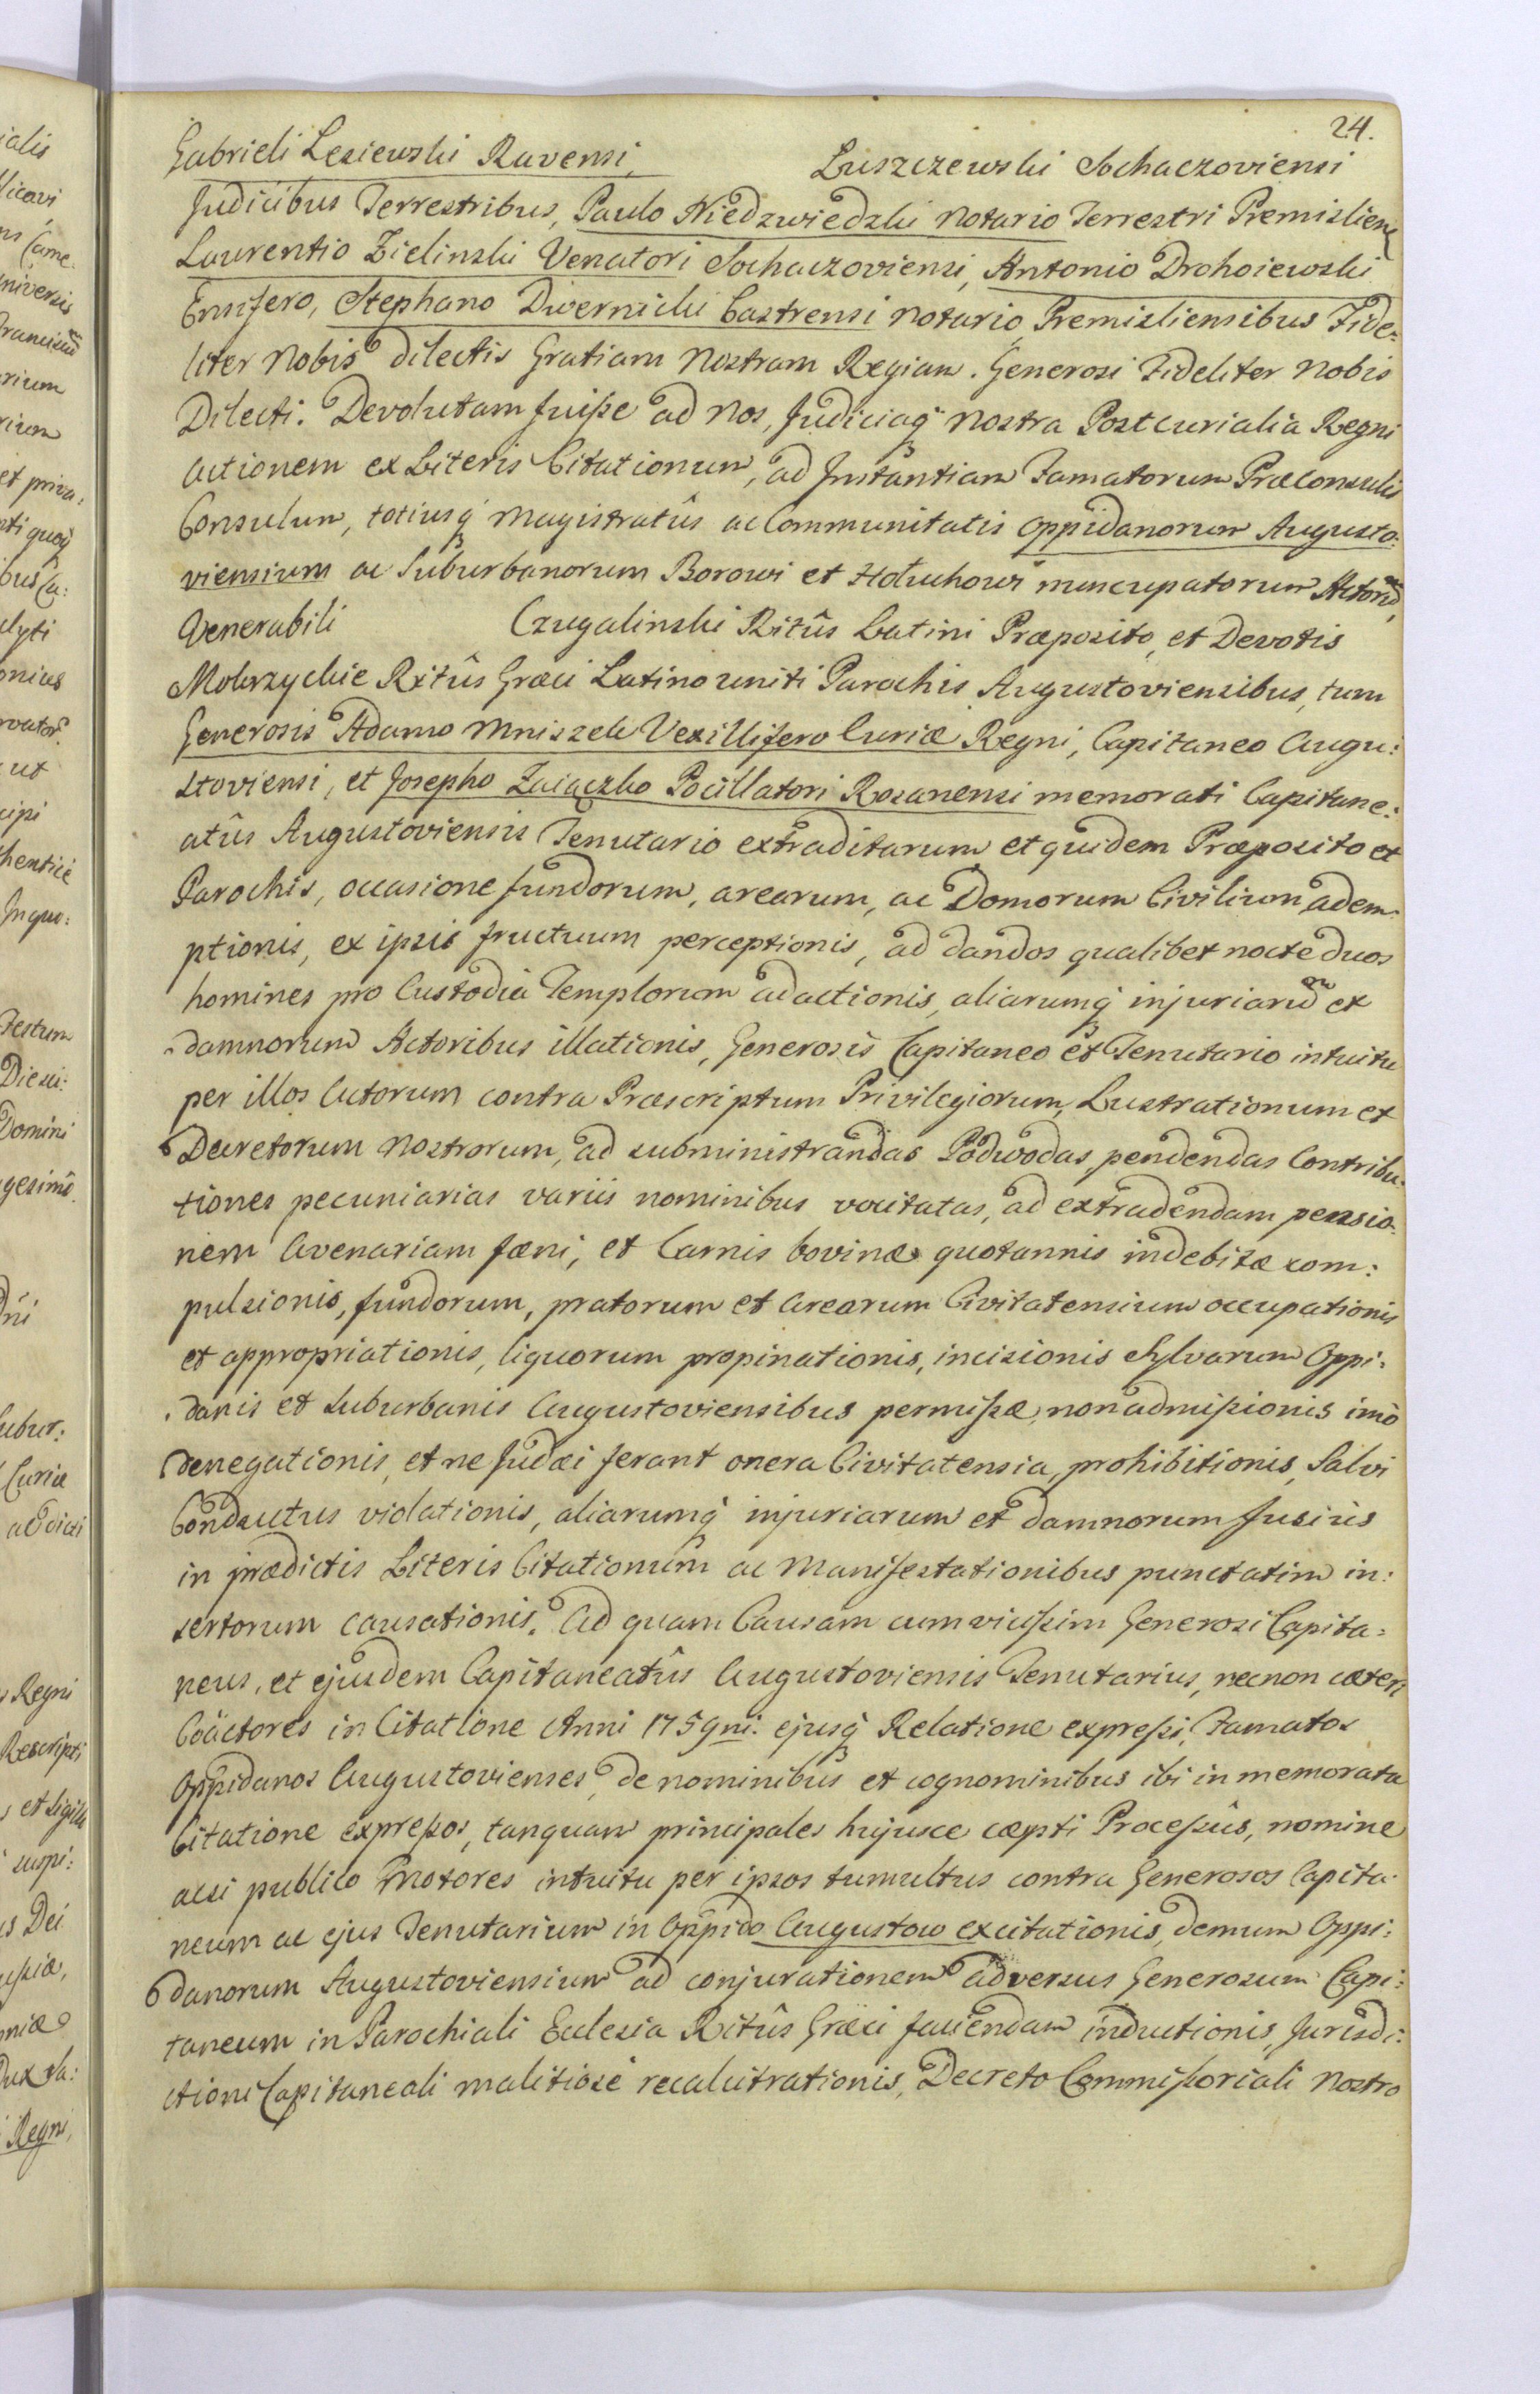 24.
Gabrieli Leziewski Ravensi, Luszczewski Sochaczoviensi
Judicibus Terrestribus, Paulo Niedzwiedzki Notario Terrestri Premislien
Laurentio Zielinski Venatori Sochaczoviensi, Antonio Drohoiewski
Ensifero, Stephano Dwernicki Castrensi Notario Premisliensibus Fide:
liter Nobis dilectis Gratiam Nostram Regiam. Generosi Fideliter Nobis
Dilecti. Devolutam fuiße ad Nos, Judiciaq́ Nostra Postcurialia Regni
Actionem ex Literis Citationum, ad Instantiam Famatorum Præconsulis
Consulum, totiusq́ Magistratûs ac Communitatis Oppidanorum Augusto:
viensium ac Suburbanorum Borowi et Hołuchowi nuncupatorum Actorũ,
Venerabili Czugalinski Ritûs Latini Præposito, et Devotis
Mokrzyckie Ritûs Græci Latino uniti Parochis Augustoviensibus, tum
Generosis Adamo Mniszek Vexillifero Curiæ Regni, Capitaneo Augu:
stoviensi, et Josepho Zaiączko Pocillatori Rosanensi memorati Capitane:
atûs Augustoviensis Tenutario extraditarum et quidem Præposito et
Parochis, occasione fundorum, arearum, ac Domorum Civilium adem:
ptionis, ex ipsis fructuum perceptionis, ad dandos qualibet nocte duos
homines pro Custodia Templorum adactionis, aliarumq́ injuriarũ et
damnorum Actoribus illationis, Generosis Capitaneo et Tenutario intuitu
per illos Actorum contra Præscriptum Privilegiorum, Lustrationum et
Decretorum Nostrorum, ad subministrandas Podwodas, pendendas Contribu:
tiones pecuniarias variis nominibus vocitatas, ad extradendam pensio:
nem Avenariam fæni, et Carnis bovinæ quotannis indebitæ com:
pulsionis, fundorum, pratorum et Arearum Civitatensium occupationis
et appropriationis, liquorum propinationis, incisionis Sylvarum Oppi:
danis et Suburbanis Augustoviensibus permißæ, non admißionis imò
denegationis, et ne Judæi ferant onera Civitatensia, prohibitionis, Salvi
Conductus violationis, aliarumq́ injuriarum et damnorum fusiùs
in prædictis Literis Citationum ac Manifestationibus punctatim in:
sertorum causationis. Ad quam Causam cum vicißim Generosi Capita:
neus, et ejusdem Capitaneatûs Augustoviensis Tenutarius, necnon cæteri
Coäctores in Citatione Anni 1759ni. ejusq́ Relatione expreßi, Famatos
Oppidanos Augustovienses, de nominibus et cognominibus ibi in memorata
Citatione expreßos, tanquam principales hujusce cæpti Proceßûs, nomine
acsi publico Motores intuitu per ipsos tumultus contra Generosos Capita:
neum ac ejus Tenutarium in Oppido Augustow excitationis, demum Oppi:
danorum Augustoviensium ad conjurationem adversus Generosum Capi:
taneum in Parochiali Eclesia Ritûs Græci faciendam inductionis, Jurisdi:
ctioni Capitaneali malitiosè recalcitrationis, Decreto Commißoriali Nostro